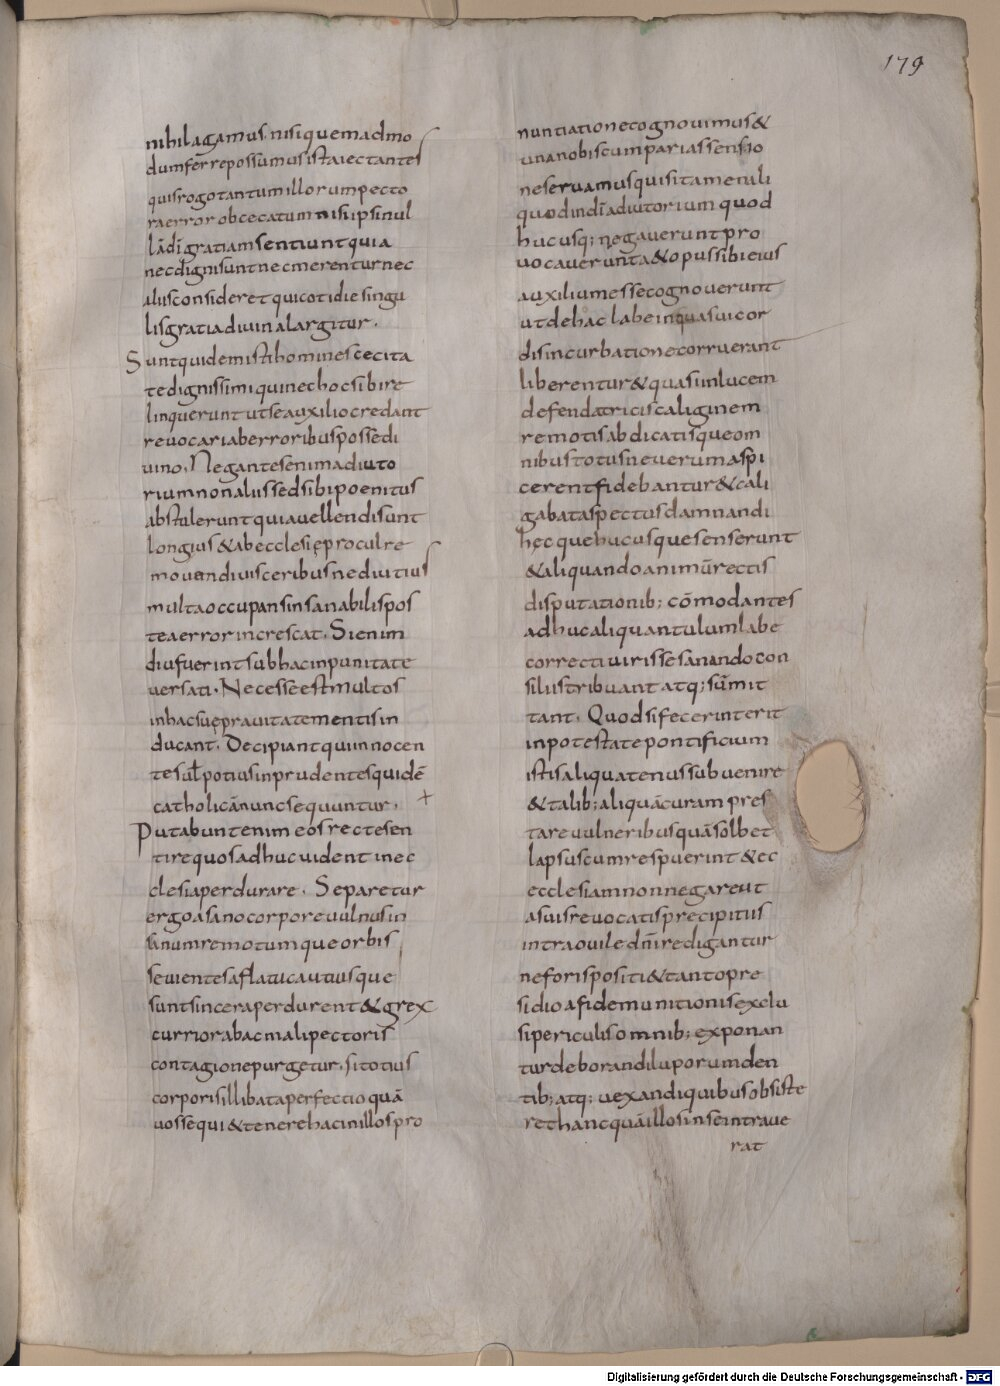 179
nihil agamus. nisi quemadmo
dum ferre possumus ista iectantes
quis rogo tantum illorum pecto
ra error obcecatum nisi ipsi nul
lā dī gratiam sentiunt quia
nec digni sunt nec merentur nec
aliis consideret qui cotidie singu
lis gratia divina largitur.
Sunt quidem isti homines cecita
te dignissimi qui nec hoc sibi re
linquerunt ut se auxilio credant
revocari ab erroribus posse di
vino. Negantes enim adiuto
rium non aliis sed sibi poenitus
abstulerunt qui avellendi sunt
longius & ab ecclesię procul re
movendi visceribus ne diutius
multa occupans insanabilis pos
tea error increscat. Si enim
diu fuerint sub hac inpunitate
versati. Necesse est multos
in hac suę pravitate mentis in
ducant. Decipiant qui innocen
tes ul potius inprudentes quidē
catholicā nunc sequuntur. +
Putabunt enim eos recte sen
tire quos adhuc vident in ec
clesia perdurare. Separetur
ergo a sano corpore vulnus in
sanum remotumque orbis
sevientes aflatu cautiusque
sunt sincera perdurent & grex
currior ab ac mali pectoris
contagione purgetur. sit otius
corporis illibata perfectio quā
vos sequi & tenere hac in illos pro
nuntiatione cognovimus &
una nobiscum pari assensio
ne servamus qui si tam et uli
quod in dī adiutorium quod
hucusq; negaverunt pro
vocaverunt a & opus sibi eius
auxilium esse cognoverunt
ut de hac labe in quas sui cor
dis incurbatione corruerant
liberentur & quasi in lucem
defendatricis caliginem
remotis abdicatisque om
nibus totus ne verum aspi
cerent fidebantur & cali
gabat aspectus damnandi
hęc que hucusque senserunt
& aliquando animū rectis
disputationib; cōmodantes
adhuc aliquantulum labe
correcti viris se sanando con
siliis tribuant atq; sūmit
tant. Quod si fecerint erit
in potestate pontificium
istis aliquatenus subvenire
& talib; aliquā curam pres
tare vulneribus quā solb et
lapsus cum respuerint & ec
ecclesiam non negare ut
a suis revocatis precipitiis
intra ovile dn̄i redigantur
ne foris positi & tanto pre
sidio a fide munitionis exclu
si periculis omnib; exponan
tur deborandi luporum den
tib; atq; vexandi quibus obsiste
re t hanc quā illos in se intrave
rat
Digitalisierung gefördert durch die Deutsche Forschungsgemeinschaft - DFG